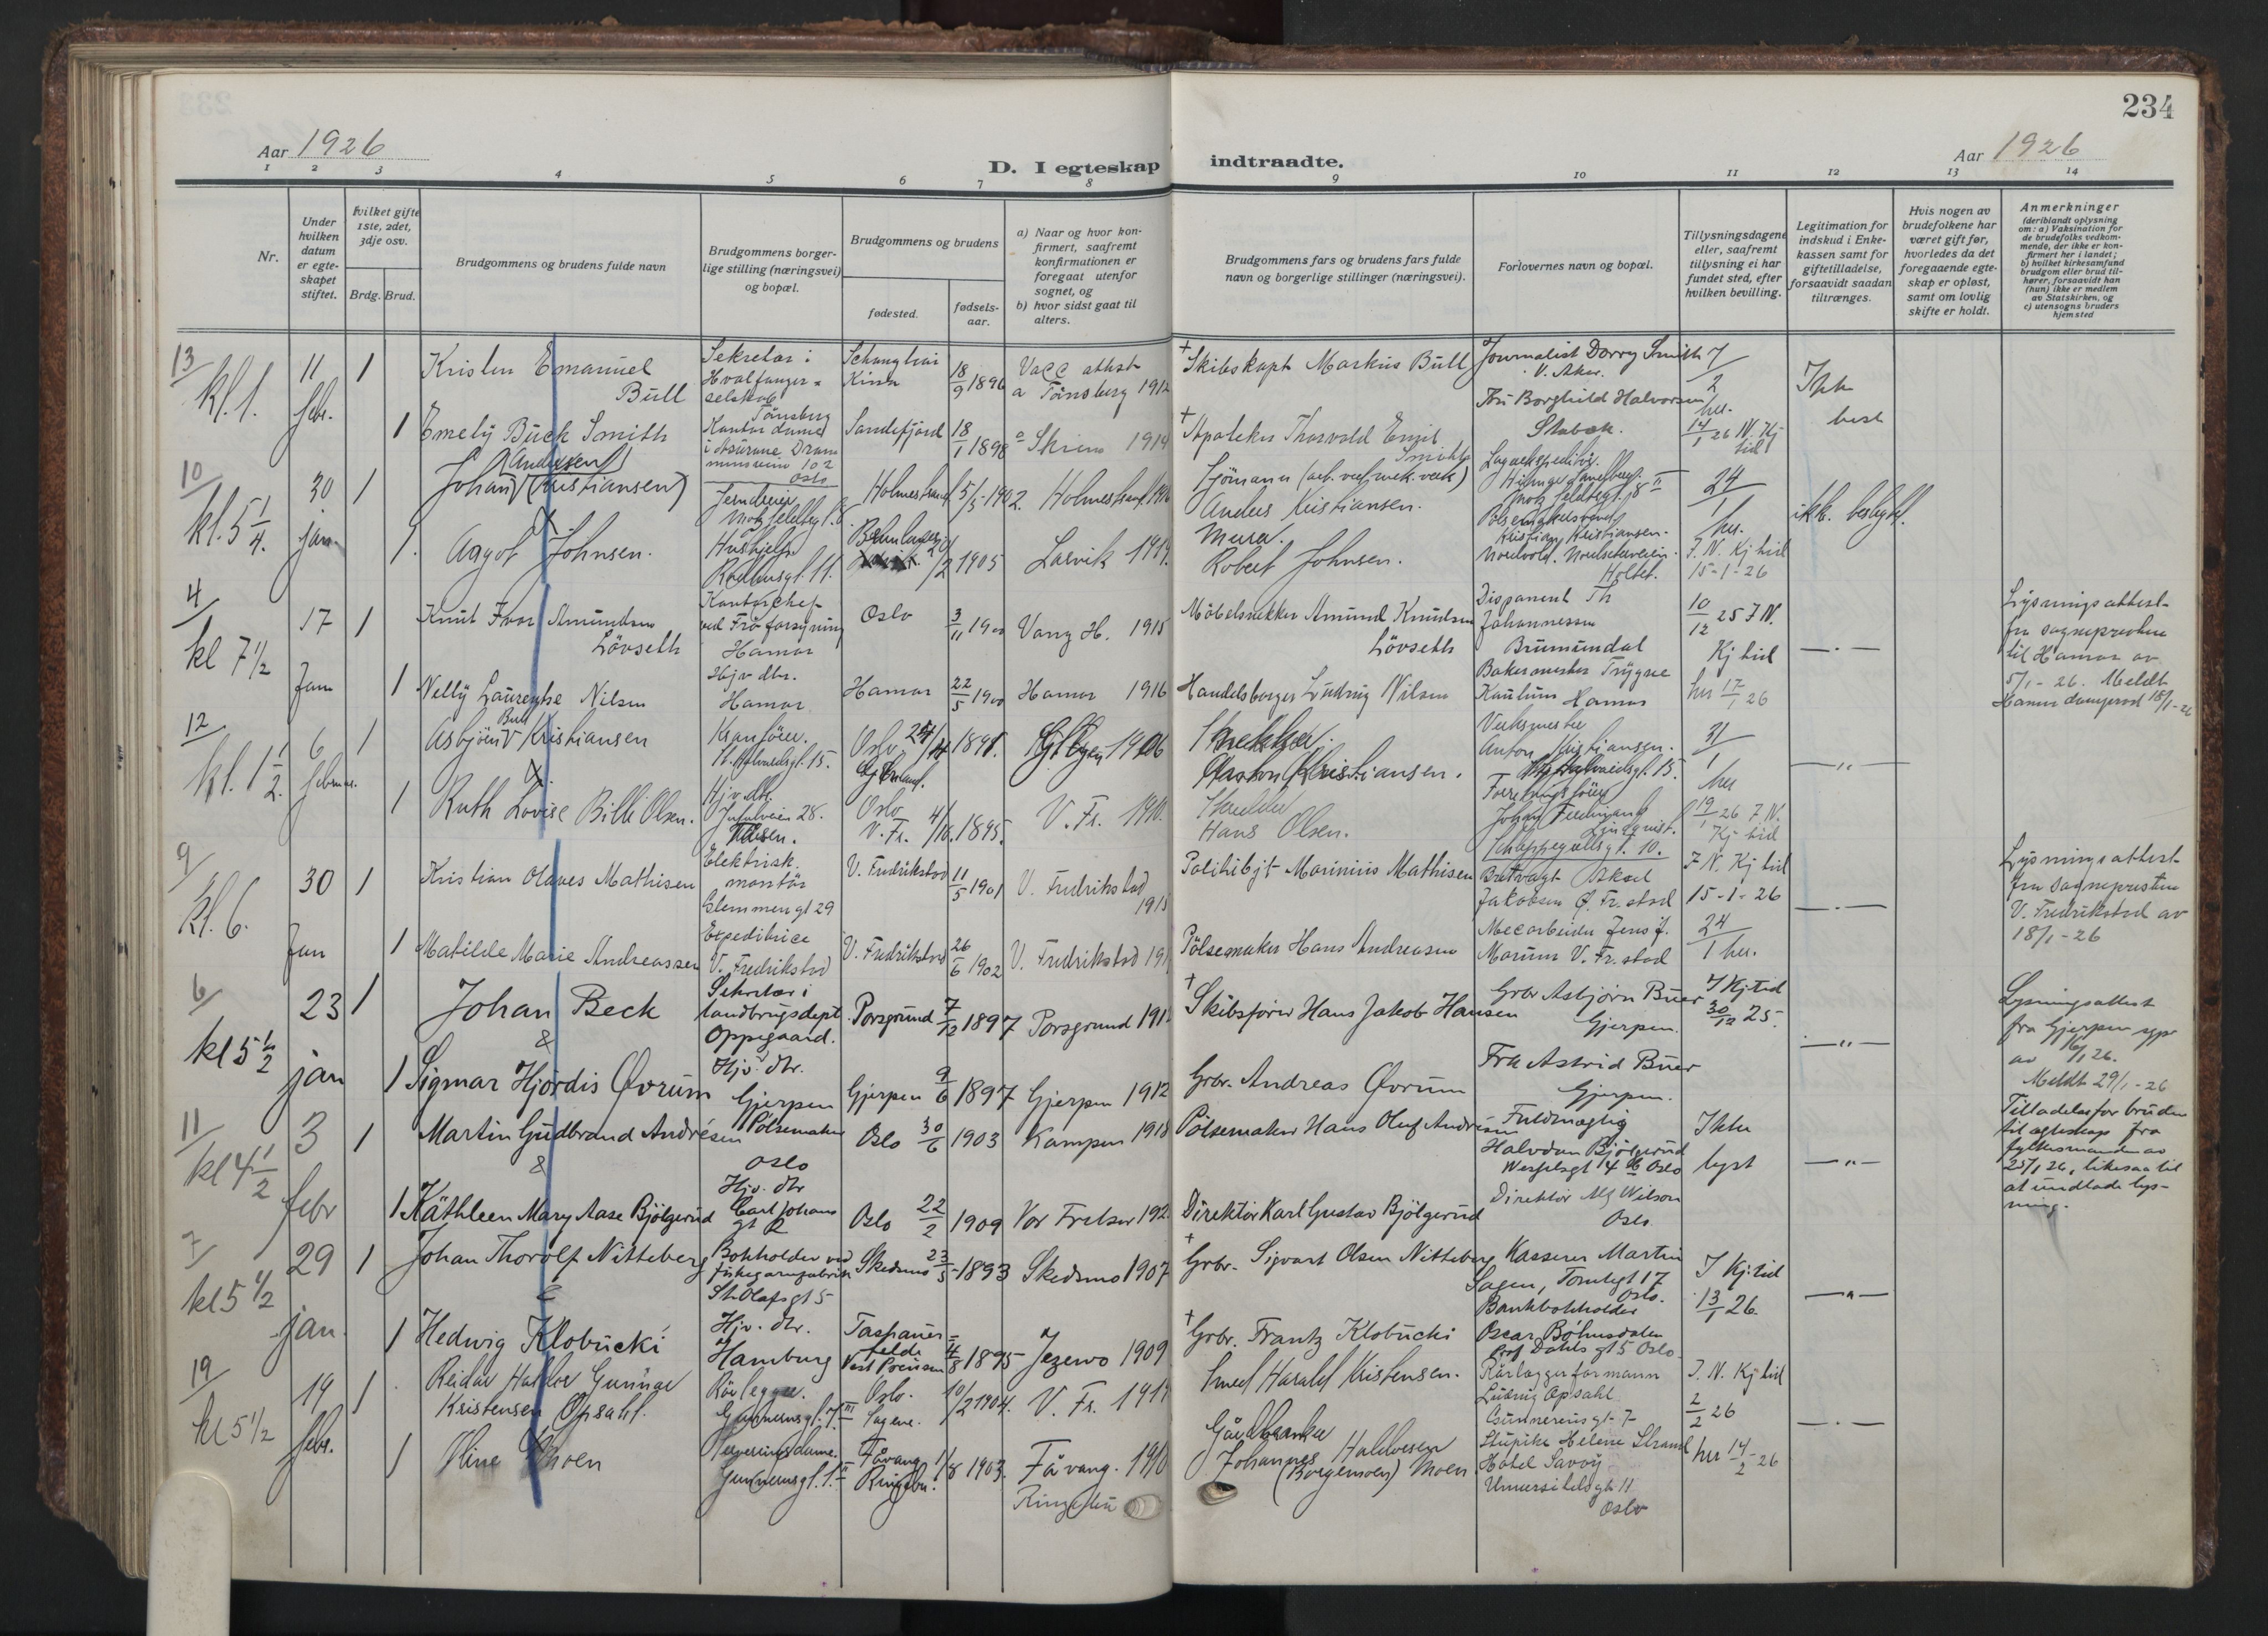 234
Aar 1926
D. I egteskap indtraadte.
Aar 1926
1 2 3 4 5 6 7 8 9 10 11 12 13 14
Nr.
Under hvilken datum er egteskapet stiftet.
hvilket gifte 1ste, 2det, 3dje osv.
Brdg. Brud.
Brudgommens og brudens fulde navn
Brudgommens borgerlige stilling (næringsvei) og bopæl.
Brudgommens og brudens
fødested.
fødselsaar.
a) Naar og hvor konfirmert, saafremt konfirmationen er foregaat utenfor sognet, og
b) hvor sidst gaat til alters.
Brudgommens fars og brudens fars fulde navn og borgerlige stillinger (næringsvei).
Forlovernes navn og bopæl.
Tillysningsdagene eller, saafremt tillysning ei har fundet sted, efter hvilken bevilling.
Legitimation for indskud i Enkekassen samt for giftetilladelse, forsaavidt saadan tiltrænges.
Hvis nogen av brudefolkene har været gift før, hvorledes da det foregaaende egteskap er opløst, samt om lovlig skifte er holdt.
Anmerkninger
(deriblandt oplysning om: a) Vaksination for de brudefolks vedkommende, der ikke er konfirmert her i landet;
b) hvilket kirkesamfund brudgom eller brud tilhører, forsaavidt han (hun) ikke er medlem av Statskirken, og
c) utensogns bruders hjemsted
13 kl. 1. 11 febr. 1
Kristen Emanuel Bull
Sekretær i Hvalfanger=selskab Tønsberg
Schanghai Kina 18/9 1896
Vacc attest a Tönsberg 1912
† Skibskapt Markus Bull
Journalist Dorry Smith V. Aker.
7/2 her.
Ikke besl
1 Emely Buck Smith
Kontordame
Oslo
Sandefjord 18/1 1898
a Skien 1914
† Apoteker Thorvald Emil Smith
Fru Borghild Halvorsen Stabæk.
14/1 26 N. Kj tid
10 kl. 5 1/4. 30 jan. 1
Johan (Kristiansen) (Andersen)
Holmestrand 5/5 1902. Holmestrand 1916
Sjömann
Anders Kristiansen.
24/1 her.
ikke beslegtet.
1. Aagot Johnsen.
Hushjelp
Rådhusgt. 11.
20/2 1905 Larvik 1919.
Murer.
Robert Johnsen.
Kristian Kristiansen.
Holtet.
F. N. Kj tid 15-1-26
4 kl 7 1/2 17 Jan 1
Knut Ivar Amundsen Lövseth
Kontorchef ved Fröforsyning Hamar
Oslo 3/11 1900 Vang H. 1915
Möbelsnekker Amund Knudsen Lövseth
Disponent Th Johannessen Brumunddal
10/12 25 F N. Kj tid
—.—
Lysningsattest fra sogneprestene til Hamar av 5/1-26. Meldt Hamar domprost 18/1-26
1 Nelly Laurentse Nilsen
Hjv dtr. Hamar
Hamar 22/5 1900 Hamar 1916
Handelsborger Ludvig Nilsen
Bakermester Trygve Hamar
her 17/1 26
12 kl. 1 1/2. 6 februar. 1
Asbjörn Kristiansen
Kranförer.
St. Halvardsgt. 15.
Oslo 1891.
Snekker.
Anton Kristiansen.
Verksmester Anton Kristiansen. St. Halvardsgt. 15.
31/1 her
—"—
1 Ruth Lovise Bille Olsen.
Hjv. dtr.
Oslo V. Fr. 4/10. 1895.
V. Fr. 1910.
Hans Olsen.
Forretningsförer Johan Ferdinand Lindquist. Schleppegrellsgt. 10.
19/1 26 F N. Kj tid
9 kl. 6. 30 Jan 1
Kristian Olaves Mathisen
Elektrisk. montör Glemmengt 29
V. Fredrikstad 11/5 1901 V. Fredrikstad 1915
Politibtjt Marinius Mathisen
Jakobsen Ø. Fr. stad
F N. Kj tid 15-1-26
—.—
Lysningsattest fra sogneprestene V. Fredrikstad av 18/1-26
1 Matilde Marie Andreassen
Expeditrice V. Fredrikstad
V. Fredrikstad 26/6 1902 V. Fredrikstad
Pölsemaker Hans Andreasen
Mecarbeider Jens J. Marum V. Fr. stad
24/1 her.
6 kl 5 1/2 23 jan 1
Johan Beck
&
Sekretær i Landbrugsdept. Oppegaard.
Porsgrund 7/12 1897 Porsgrund 1912
† Skibsförer Hans Jakob Hansen
Grbr Asbjörn Buer Gjerpen.
I Kj.tid 30/12 25.
—"—
Lysningsattest fra Gjerpen sgp av 16/1 26. Meldt 29/1-26
1 Sigmar Hjördis Øvrum
Hjv. dtr. Gjerpen
Gjerpen 9/6 1897 Gjerpen 1912
Grbr. Andreas Øvrum
Fru Astrid Buer Gjerpen.
11 kl 4 1/2 3 febr 1
Martin Gudbrand Andrésen
&
Pölsemaker Oslo
Oslo 30/6 1903 Kampen 1918
Pölsemaker Hans Oluf Andrésen
Fuldmægtig Halvdan Bjölgerud Wesselsgt 4 Oslo
Ikke lyst
—"—
Tilladelse for bruden til ægteskap fra fylkesmanden av 25/1 26, likesaa til at undlade lysning.
1 Käthleen Mary Aase Bjölgerud
Hjv. dtr Carl Johans gt 2
Oslo 22/2 1909 Vor Frelser 192
Direktör Karl Gustav Bjölgerud
Direktör Alf Wilson Oslo
7 kl 5 1/2 29 jan. 1
Johan Thorolf Nitteberg
&
Bokholder ved fiskegarnfabrik St. Olafsgt 5
Skedsmo 23/5 1893 Skedsmo 1907
† Grbr. Sigvart Olsen Nitteberg
Kasserer Martin Sagen, Tomtegt 17 Oslo.
I Kj.tid 13/1 26.
—"—
1 Hedwig Klobucki
Hjv. dtr. Hamburg
Taspauer=felde Vest Preussen 4/8 1895 Jezewo 1909
† Grbr. Frantz Klobucki
Bankbokholder Oscar Böhnsdalen Prof Dahls gt 5 Oslo
19 kl 5 1/2 19 febr. 1
Reidar Haldor Gunnar Kristensen Opsahl.
Rörlegger. Gunnerusgt. 7 III
Oslo. Sagene. 10/2 1904. V. Fr. 1919
Smed Harald Kristensen.
Rörleggerformann Ludvig Opsahl Gunnerusgt. 7
I. N. Kj tid 2/2 26
—.—
1 Oline Moen
Serveringsdame. Gunnerusgt. 1. II
Fåvang Ringebu. 1/8 1903. Fåvang. Ringebu
Gårdbruker Johannes Halvorsen (Borgemoen) Moen
Stupike Helene Strand Hotel Savoy Universitetsgt 11 Oslo
her 14/2-26